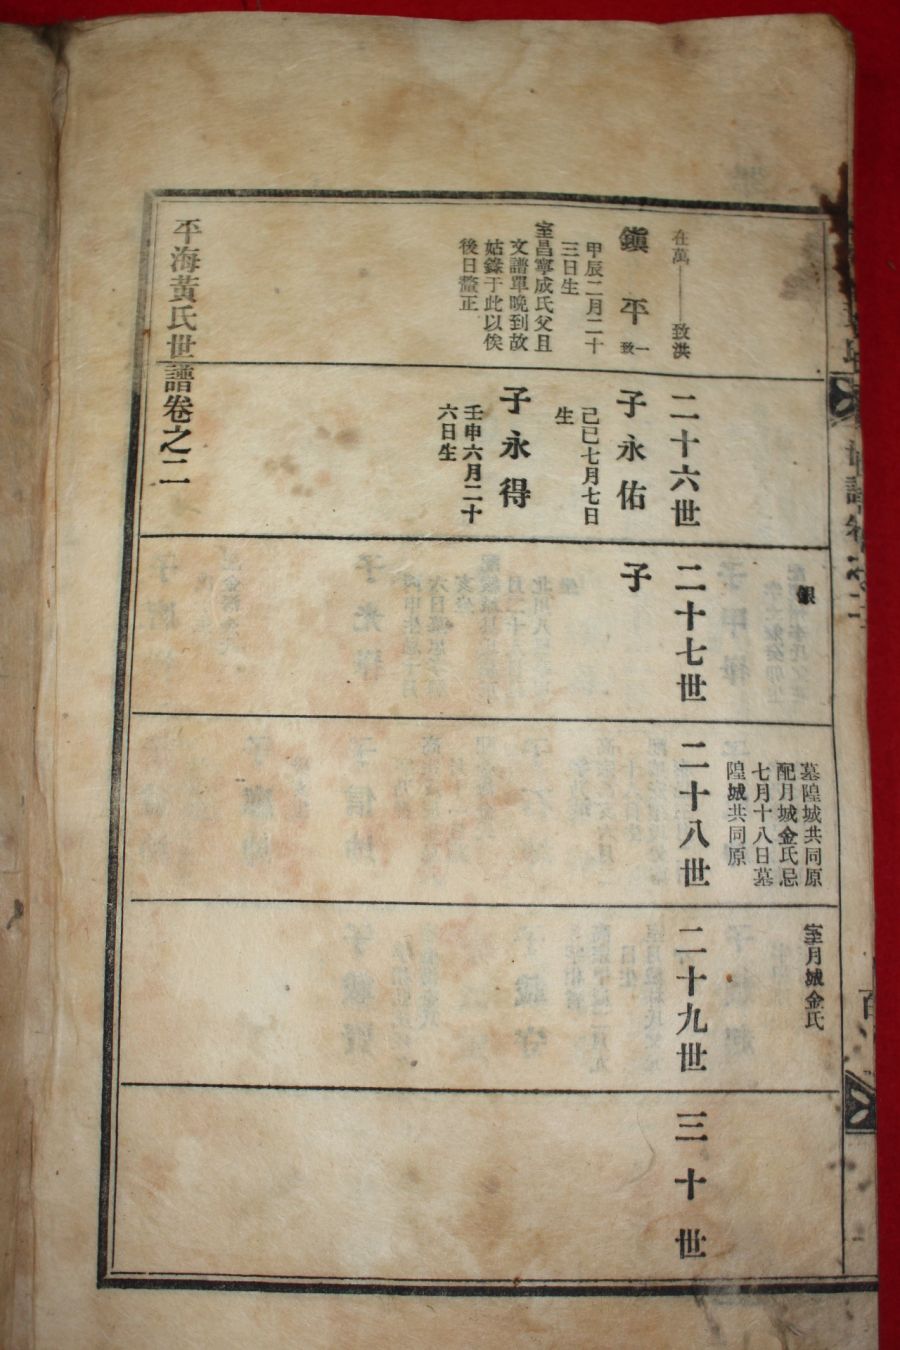 銀
墓隍城共同原
配月城金氏忌
七月十八日墓
隍城共同原
室月城金氏
在萬——致洪
二十六世
二十七世
二十八世
二十九世
三十世
鎭平一致
甲辰二月二十
三日生
室昌寧成氏父且
文譜單晩到故
姑錄于此以俟
後日釐正
子永佑
己巳七月七日
生
子永得
壬申六月二十
六日生
子
平海黃氏世譜卷之二